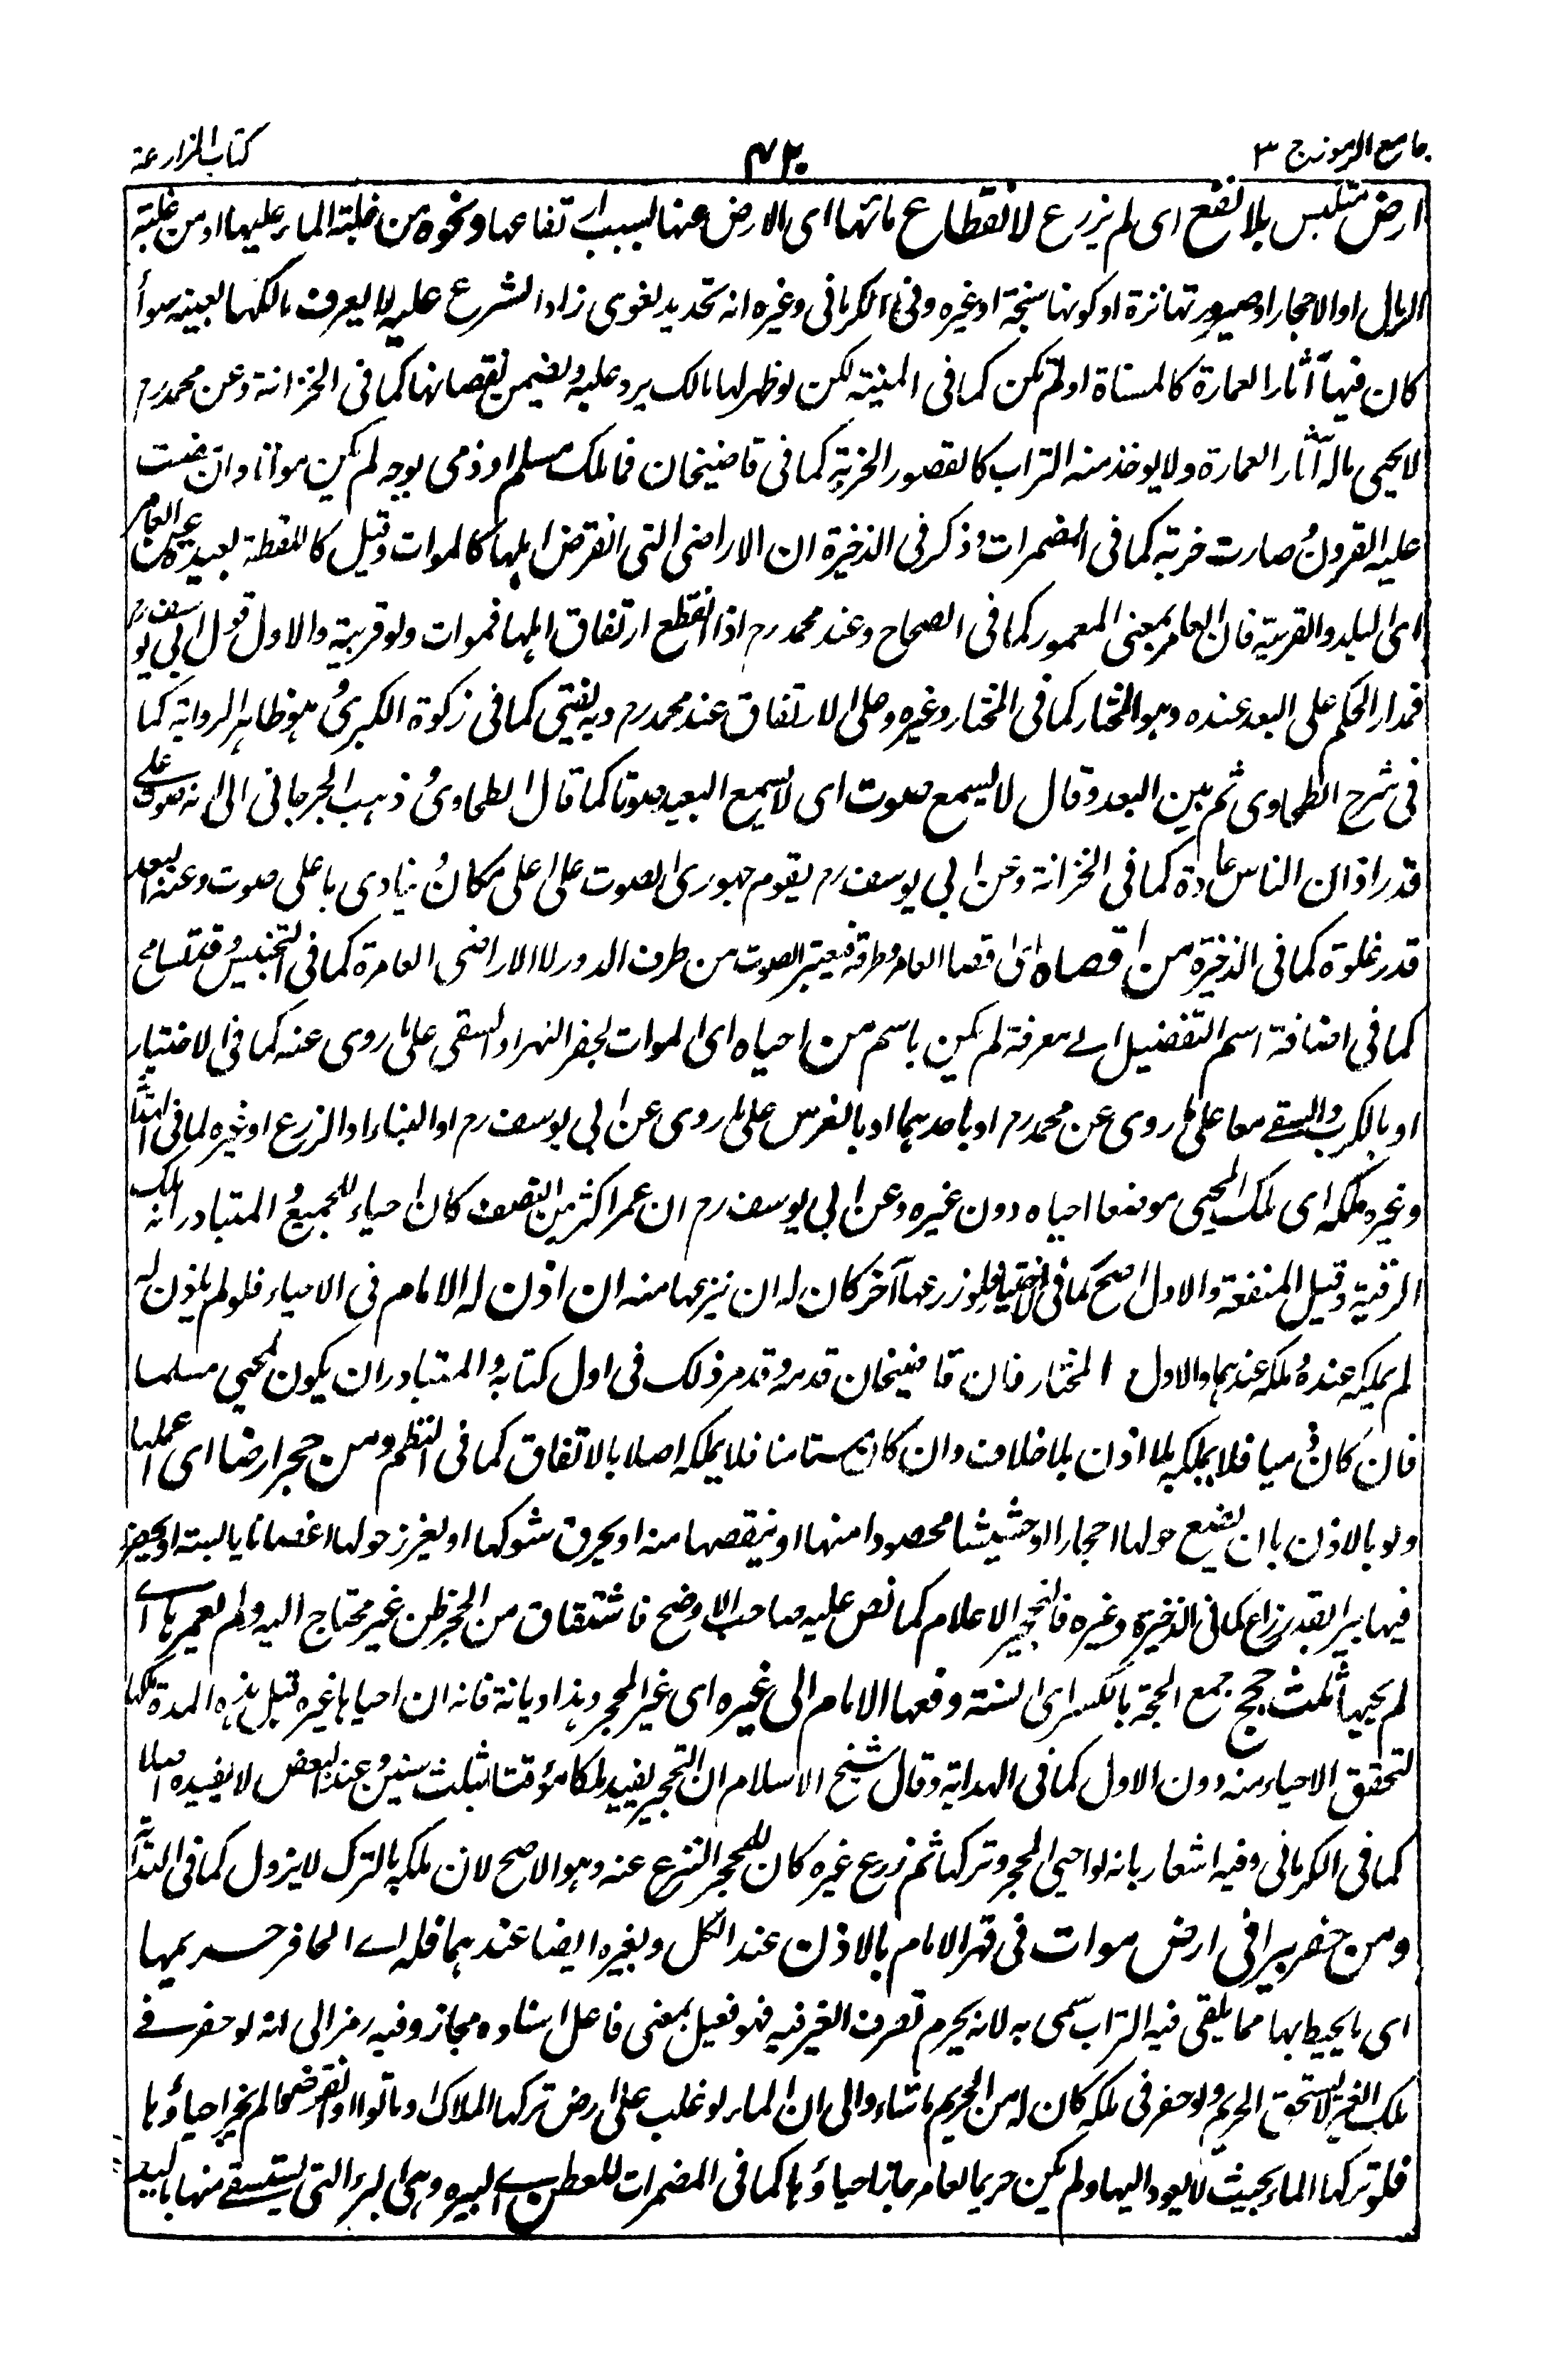 جامع الرموز ج ٣
٤٢٠
كتاب المزارعة
ارض متلبس بلا نفع اى لم يزرع لانقطاع مائها اى الارض عنها بسبب ارتفاعها ونحوه من غلبة الماء عليها او من غلبة
الرمال او الاحجار او صيرورتها نزة او كونها سبخة او غيره وفى الكرمانى وغيره انه تحديد لغوى زاد الشرع عليه لا يعرف مالكها بعينه سواء
كان فيها آثار العمارة كالمسناة او لم تكن كما فى المنية لكن لو ظهر لها مالك يرد عليه ويضمن نقصانها كما فى الخزانة وعن محمد رح
لا يحيى ماله آثار العمارة ولا يوخذ منه التراب كالقصور الخربة كما فى قاضيخان فما ملك مسلم او ذمى بوجه لم يكن مواتا وان مضت
عليه القرون وصارت خربة كما فى المضمرات وذكر فى الذخيرة ان الاراضى التى انقرض اهلها كالموات وقيل كاللقطة بعيدة عن العامر
اى البلد والقرية فان العامر بمعنى المعمور كما فى الصحاح وعند محمد رح اذا انقطع ارتفاق اهلها فموات ولو قريبة والاول قول ابى يوسف رح
فمدار الحكم على البعد عنده وهو المختار كما فى المختار وغيره وعلى الارتفاق عند محمد رح وبه يفتى كما فى زكوة الكبرى وهو ظاهر الرواية كما
فى شرح الطحاوى ثم بين البعد وقال لا يسمع صوت اى لا يسمع البعيد صوتا كما قال الطحاوى وذهب الجرجانى الى انه صوت على
قدر اذان الناس عادة كما فى الخزانة وعن ابى يوسف رح يقوم جهورى الصوت على اعلى مكان وينادى باعلى صوت وعنه البعد
قدر غلوة كما فى الذخيرة من اقصاه اى اقصا العامر وطرفه فيعتبر الصوت من طرف الدور لا الاراضى العامرة كما فى التجنيس وفيه تسامح
كما فى اضافة اسم التفضيل الى معرفة لم يكن باسم من احياه اى الموات بحفر النهر او السقى على ما روى عنه كما فى الاختيار
او بالكرب والسقى معا على ما روى عن محمد رح او باحدهما او بالغرس على ما روى عن ابى يوسف رح او البناء او الزرع او غيره كما فى
وغيره ملكه اى ملك المحيى موضعا احياه دون غيره وعن ابى يوسف رح ان عمر اكثر من النصف كان احياء للجميع والمتبادر انه ملك
الرقبة وقيل المنفعة والاول اصح كما فى الاختيار فلو زرعها آخر كان له ان ينزعها منه ان اذن له الامام فى الاحياء فلو لم ياذن له
لم يملكه عنده وملكه عندهما والاول المختار فان قاضيخان قدمه وقد مر ذلك فى اول كتابه والمتبادر ان يكون المحيى مسلما
فان كان ذميا فلا يملكه بلا اذن بلا خلاف وان كان مستامنا فلا يملكه اصلا بالاتفاق كما فى النظم ومن حجر ارضا اى
ولو بالاذن بان يضع حولها احجارا او حشيشا محصودا منها او ينقصها منه او يحرق شوكها او يغرز حولها اغصانا يابسة او يحفر
فيها بيرا بقدر ذراع كما فى الذخيرة وغيره فالتحجير الاعلام كما نص عليه صاحب الاوضح فاشتقاق من الحجر ظن غير محتاج اليه ولم يعمرها اى
لم يحيها ثلث حجج جمع الحجة بالكسر اى السنة دفعها الامام الى غيره اى غير المحجر وهذا ديانة فانه ان احياها غيره قبل هذه المدة ملكها
لتحقق الاحياء منه دون الاول كما فى الهداية وقال شيخ الاسلام ان التحجير يفيد ملكا مؤقتا بثلث سنين وعند البعض لا يفيده اصلا
كما فى الكرمانى وفيه اشعار بانه لو احيى المحجر وتركها ثم زرع غيره كان للمحجر النزع عنه وهو الاصح لان ملكه بالترك لا يزول كما فى
ومن حفر بيرا فى ارض موات فى قهر الامام بالاذن عند الكل وبغيره ايضا عندهما فله اى الحافر حريمها
اى ما يحيط بها مما يلقى فيه التراب سمى به لانه يحرم تصرف الغير فيه فهو فعيل بمعنى فاعل اسناده مجاز وفيه رمز الى انه لو حفر فى
ملك الغير لا يستحق الحريم ولو حفر فى ملكه كان له من الحريم ما شاء والى ان الماء لو غلب على ارض تركها الملاك او ماتوا او انقرضوا لم يجز احياؤها
فلو تركها الماء بحيث لا يعود اليها ولم يكن حريما لعامر جاز احياؤها كما فى المضمرات للعطن اى البير وهى البئر التى يستسقى منها باليد